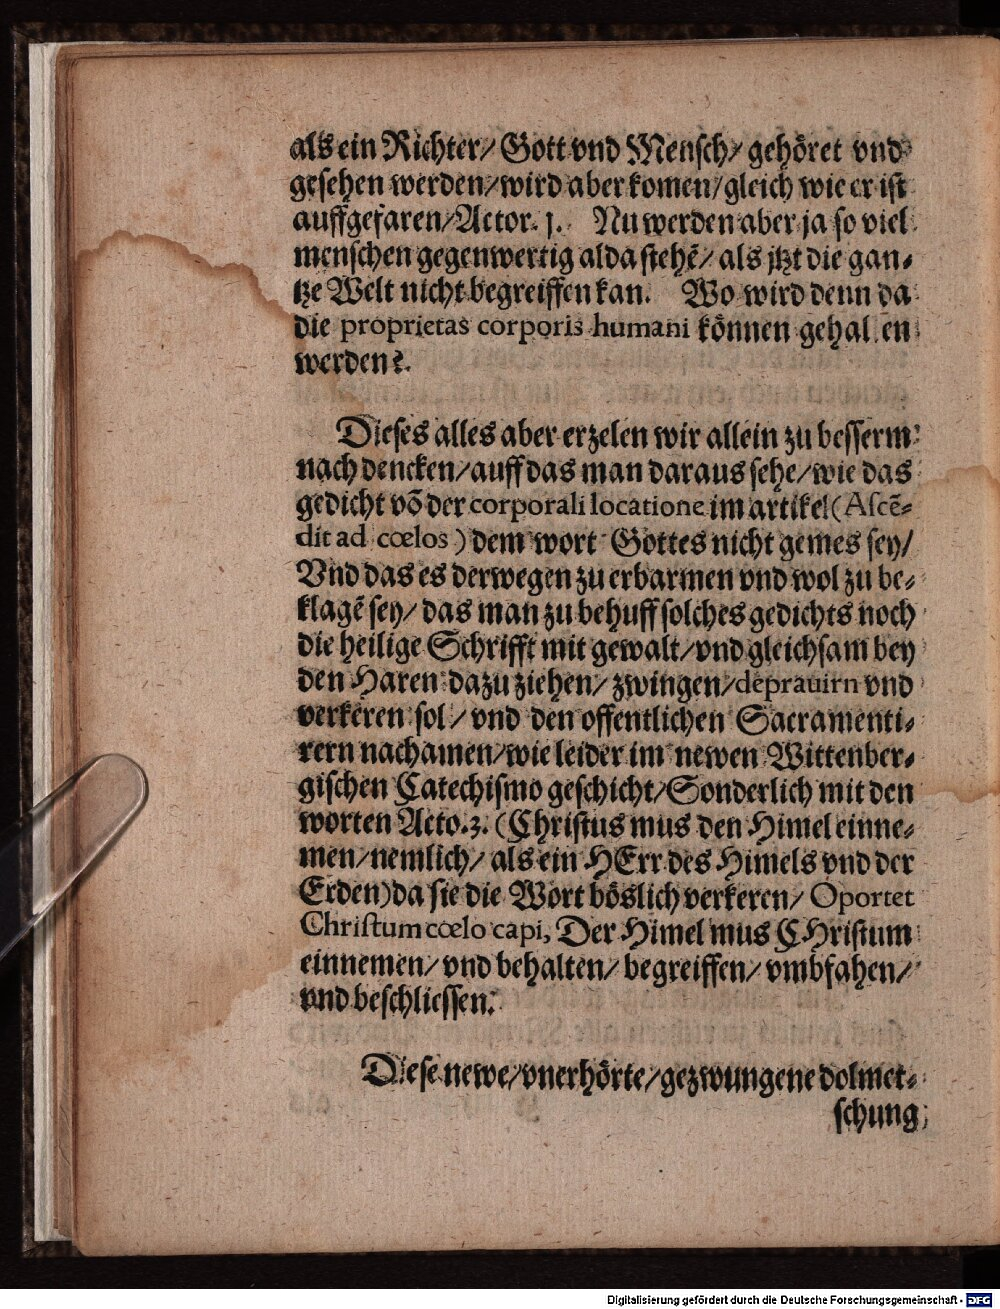 als ein Richter/ Gott vnd Mensch/ gehöret vnd
gesehen werden/ wird aber komen/ gleich wie er ist
auffgefaren/ Actor. j. Nu werden aber ja so viel
menschen gegenwertig alda stehē/ als jtzt die gan⸗
tze Welt nicht begreiffen kan. Wo wird denn da
die proprietas corporis humani können gehal en
werden?
Dieses alles aber erzelen wir allein zu besserm
nach dencken/ auff das man daraus sehe/ wie das
gedicht võ der corporali locatione im artikel (Ascē⸗
dit ad cœlos) dem wort Gottes nicht gemes sey/
Vnd das es derwegen zu erbarmen vnd wol zu be⸗
klagē sey/ das man zu behuff solches gedichts noch
die heilige Schrifft mit gewalt/ vnd gleichsam bey
den Haren dazu ziehen/ zwingen/ deprauirn vnd
verkeren sol/ vnd den offentlichen Sacramenti⸗
rern nachamen/ wie leider im newen Wittenber⸗
gischen Catechismo geschicht/ Sonderlich mit den
worten Acto. 3. (Christus mus den Himel einne⸗
men/ nemlich/ als ein HErr des Himels vnd der
Erden) da sie die Wort böslich verkeren/ Oportet
Christum cœlo capi, Der Himel mus CHristum
einnemen/ vnd behalten/ begreiffen/ vmbfahen/
vnd beschliessen.
Diese newe/ vnerhörte/ gezwungene dolmet⸗
schung
Digitalisierung gefördert durch die Deutsche Forschungsgemeinschaft - DFG